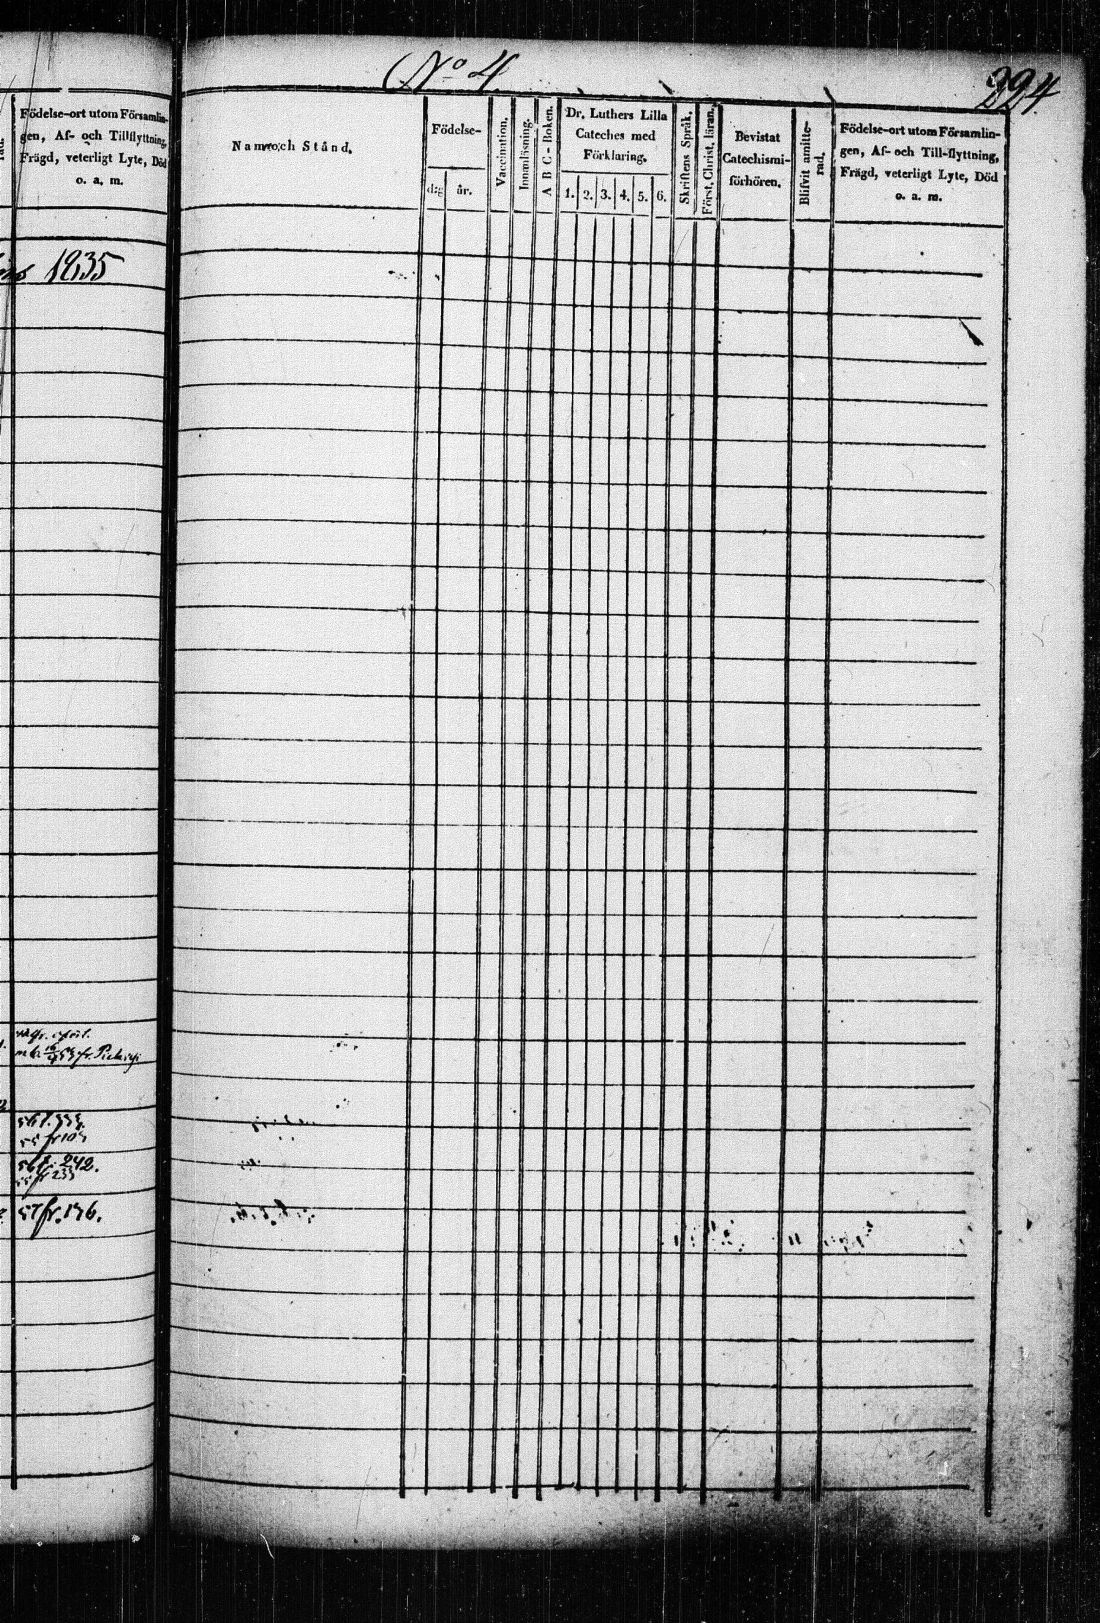 Födelse-ort utom Församlin-
gen, Af- och Tillflyttning,
Frägd, veterligt Lyte, Död
o. a. m.
1835
56 f. 242.
57 fr. 136.
No 4.
224.
Namn och Stånd.
Födelse-
dag
år.
Vaccination.
Innanläsning.
A B C-Boken.
Dr. Luthers Lilla
Cateches med
Förklaring.
1. 2. 3. 4. 5. 6.
Skriftens Språk,
Först. Christ. läran.
Bevistat
Catechismi-
förhören.
Blifvit amitte-
rad.
Födelse-ort utom Församlin-
gen, Af- och Till-flyttning,
Frägd, veterligt Lyte, Död
o. a. m.